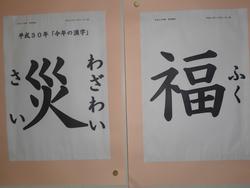 平成30年「今年の漢字」
災
わざわい
さい
福
ふく